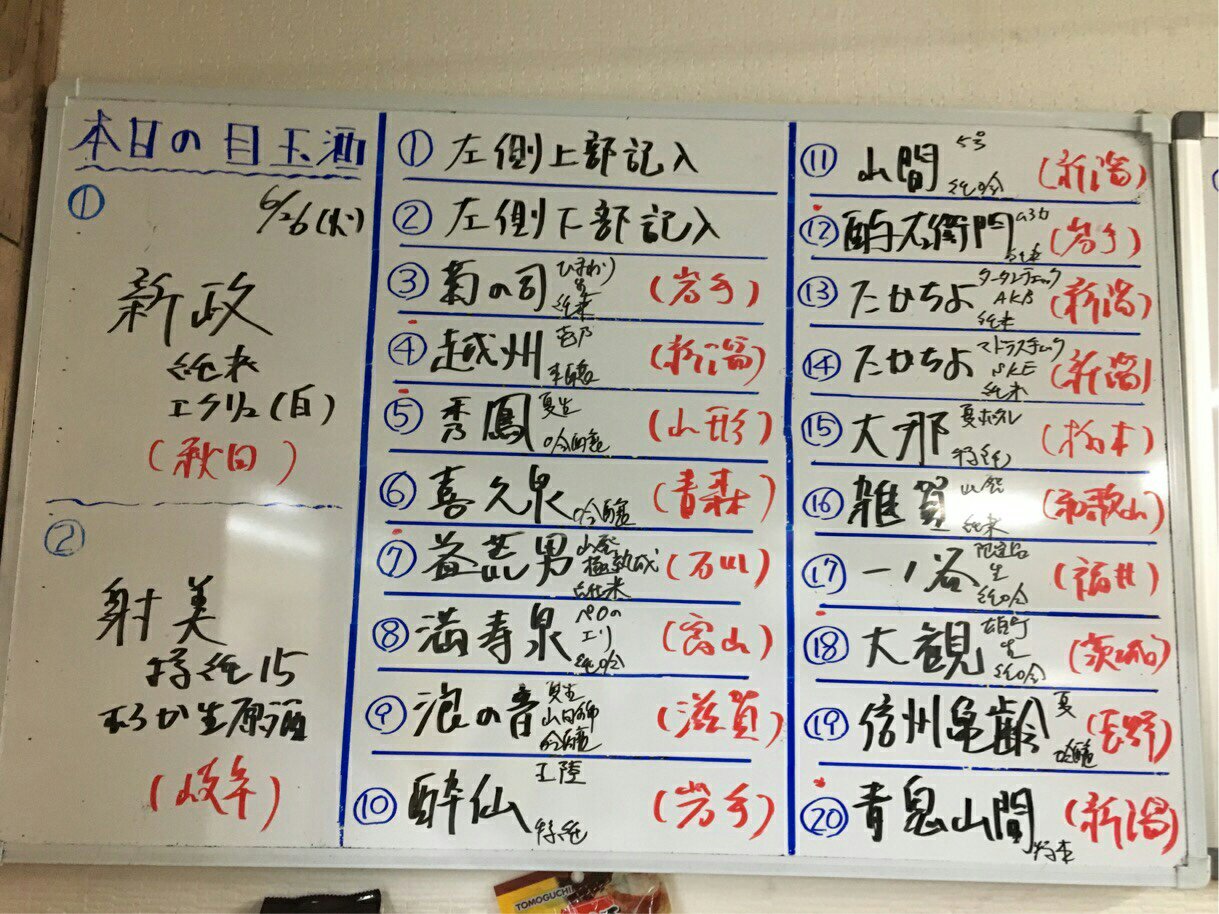 本日の目玉酒
6/26(火)
①
新政
純米
エクリュ(白)
(秋田)
②
射美
特純15
むろか生原酒
(岐阜)
① 左側上部記入
② 左側下部記入
③ 菊の司 ひまわり 純米 (岩手)
④ 越州 (新潟)
⑤ 秀鳳 夏生 吟醸 (山形)
⑥ 喜久泉 吟醸 (青森)
⑦ 益荒男 山廃 極熟成 純米 (石川)
⑧ 満寿泉 エリ 純吟 (富山)
⑨ 浪の音 夏生 山田錦 吟醸 (滋賀)
⑩ 酔仙 特純 (岩手)
⑪ 山間 5号 純吟 (新潟)
⑫ 酉与右衛門 純米 (岩手)
⑬ たかちよ タータンチェック AKB 純米 (新潟)
⑭ たかちよ マドラスチェック SKE 純米 (新潟)
⑮ 大那 夏ホタル 特純 (栃木)
⑯ 雑賀 山廃 純米 (和歌山)
⑰ 一ノ谷 限定品 生 純吟 (福井)
⑱ 大観 雄町 生 純吟 (茨城)
⑲ 信州亀齢 夏 吟醸 (長野)
⑳ 青鬼山間 特米 (新潟)
TOMOGUCHI